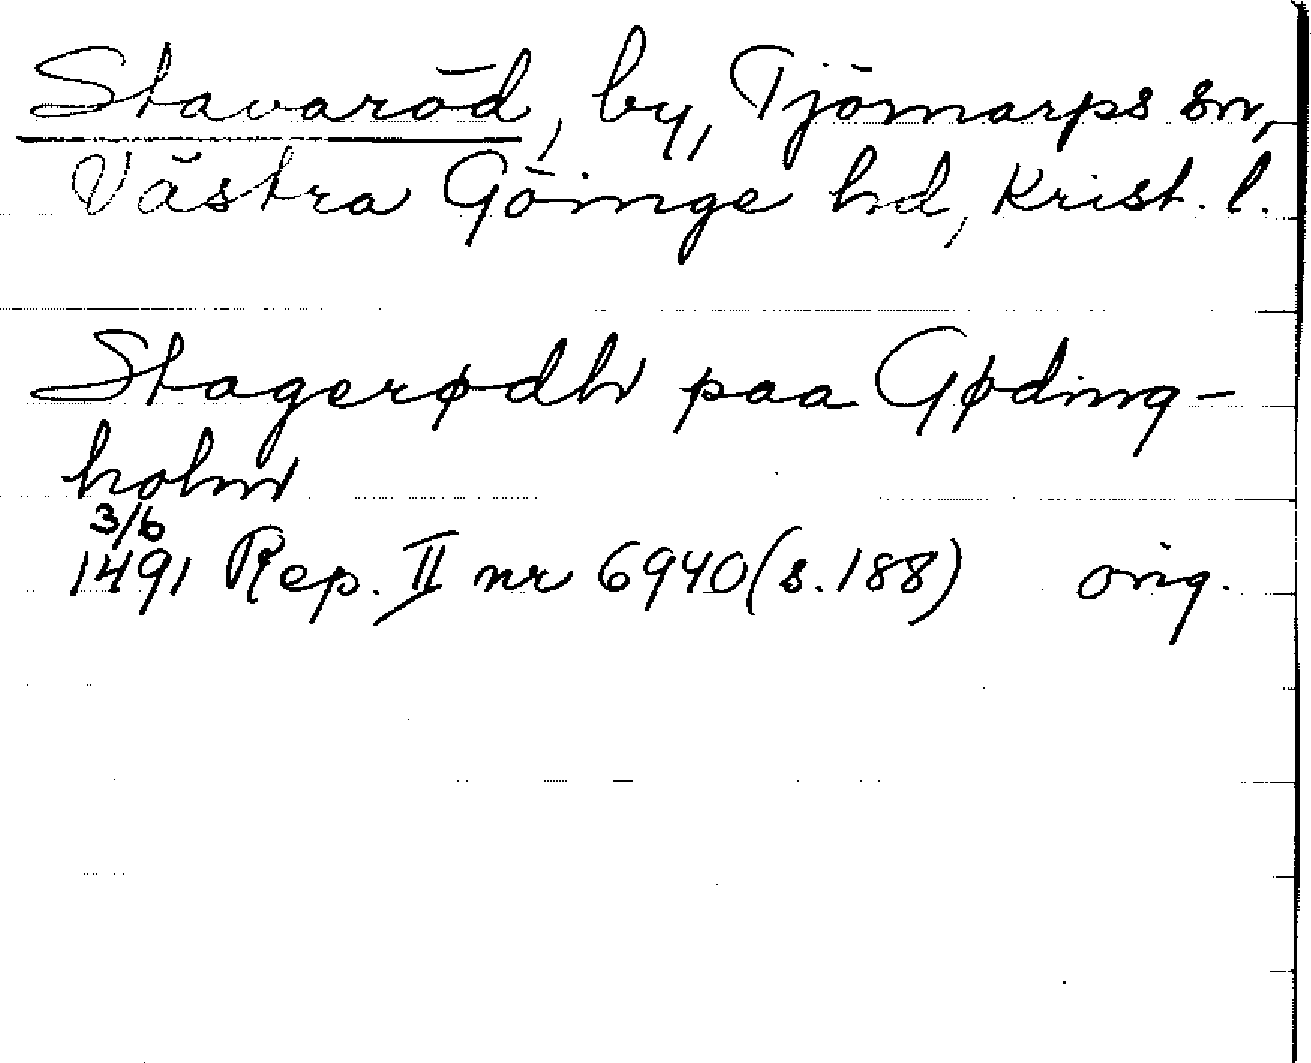 Stavaröd, by, Tjörnarps sn,
Västra Göinge hd, Krist. l.
Stagerødh paa Gøding-
holm
3/6
1491 Rep. II nr 6940 (s. 188) orig.